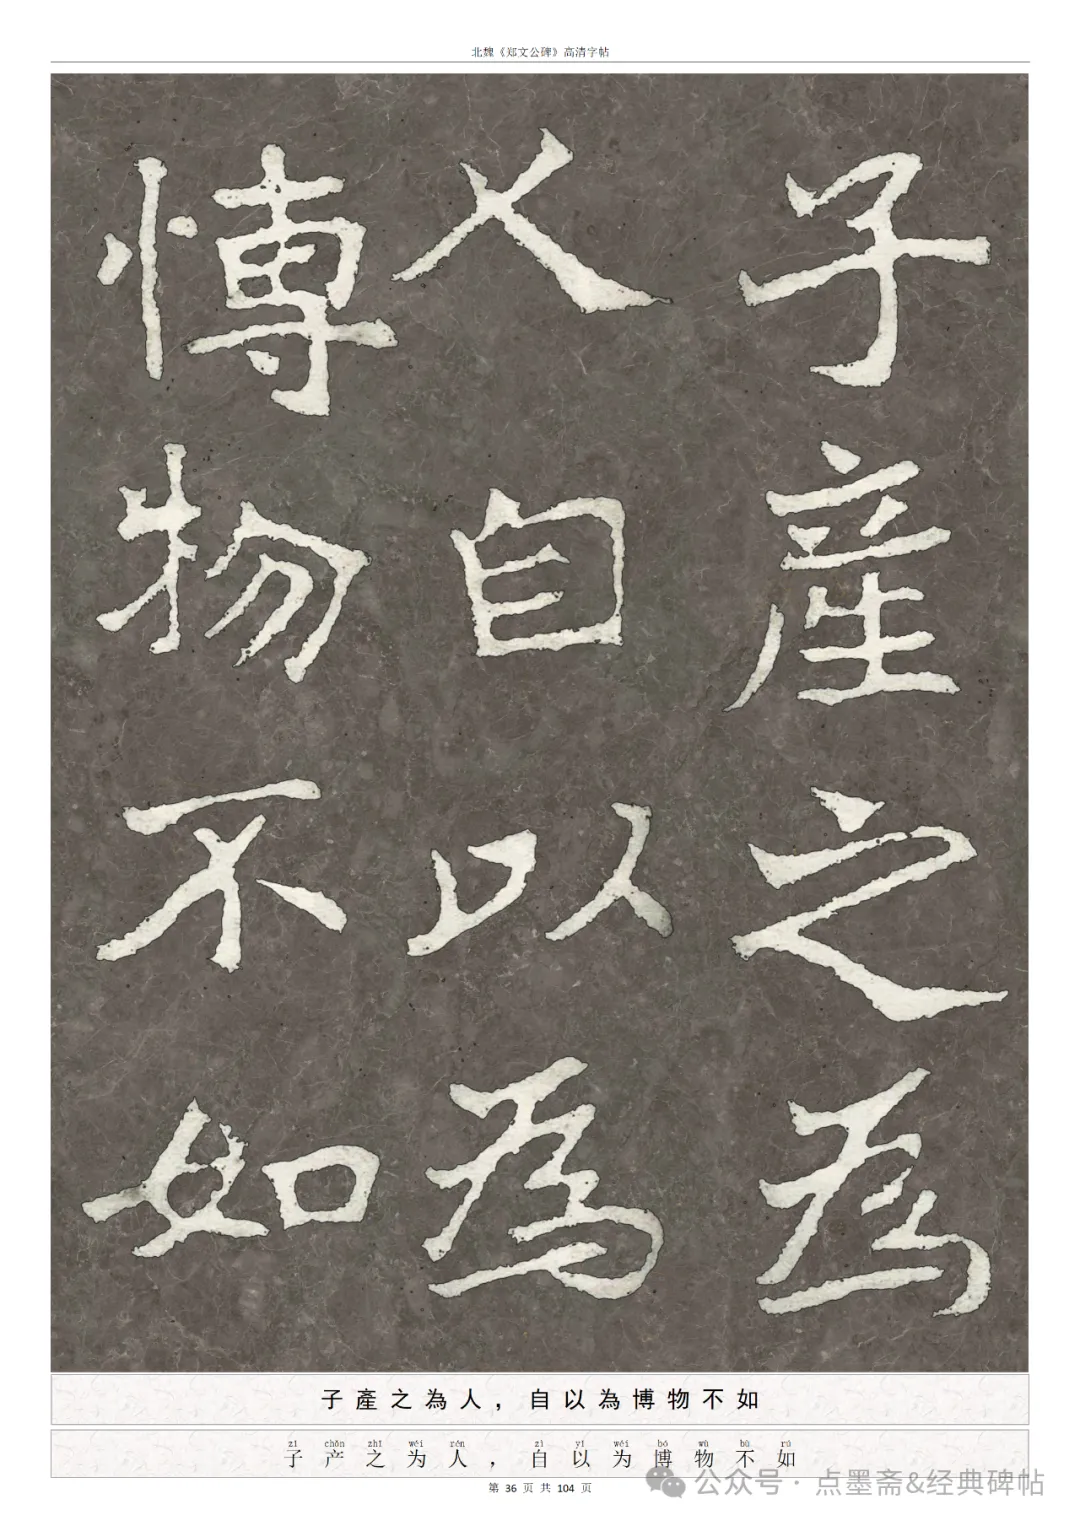 北魏《郑文公碑》高清字帖
子產之為
人自以為
愽物不如
子產之為人，自以為博物不如
zǐ chǎn zhī wéi rén zì yǐ wéi bó wù bù rú
子产之为人，自以为博物不如
第 36 页 共 104 页
公众号 · 点墨斋&经典碑帖